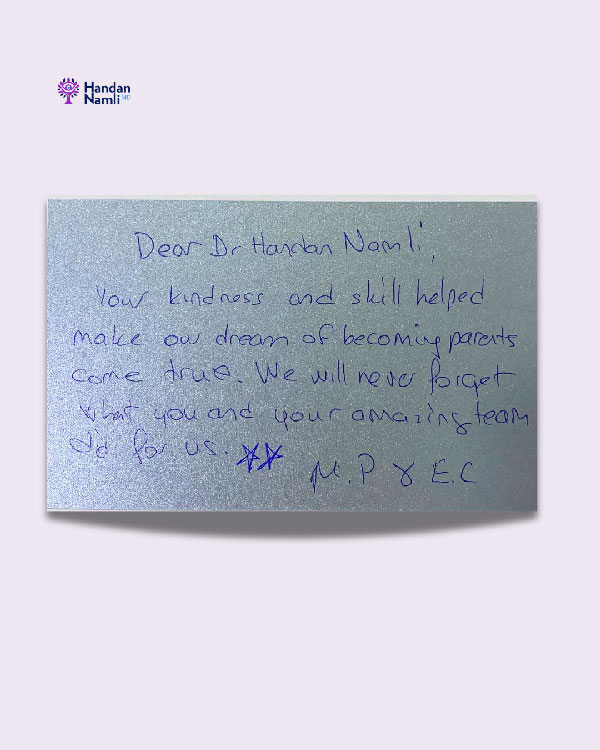 Handan
Namli MD
Dear Dr Handan Namli,
Your kindness and skill helped
make our dream of becoming parents
come true. We will never forget
what you and your amazing team
did for us.
M.P & E.C